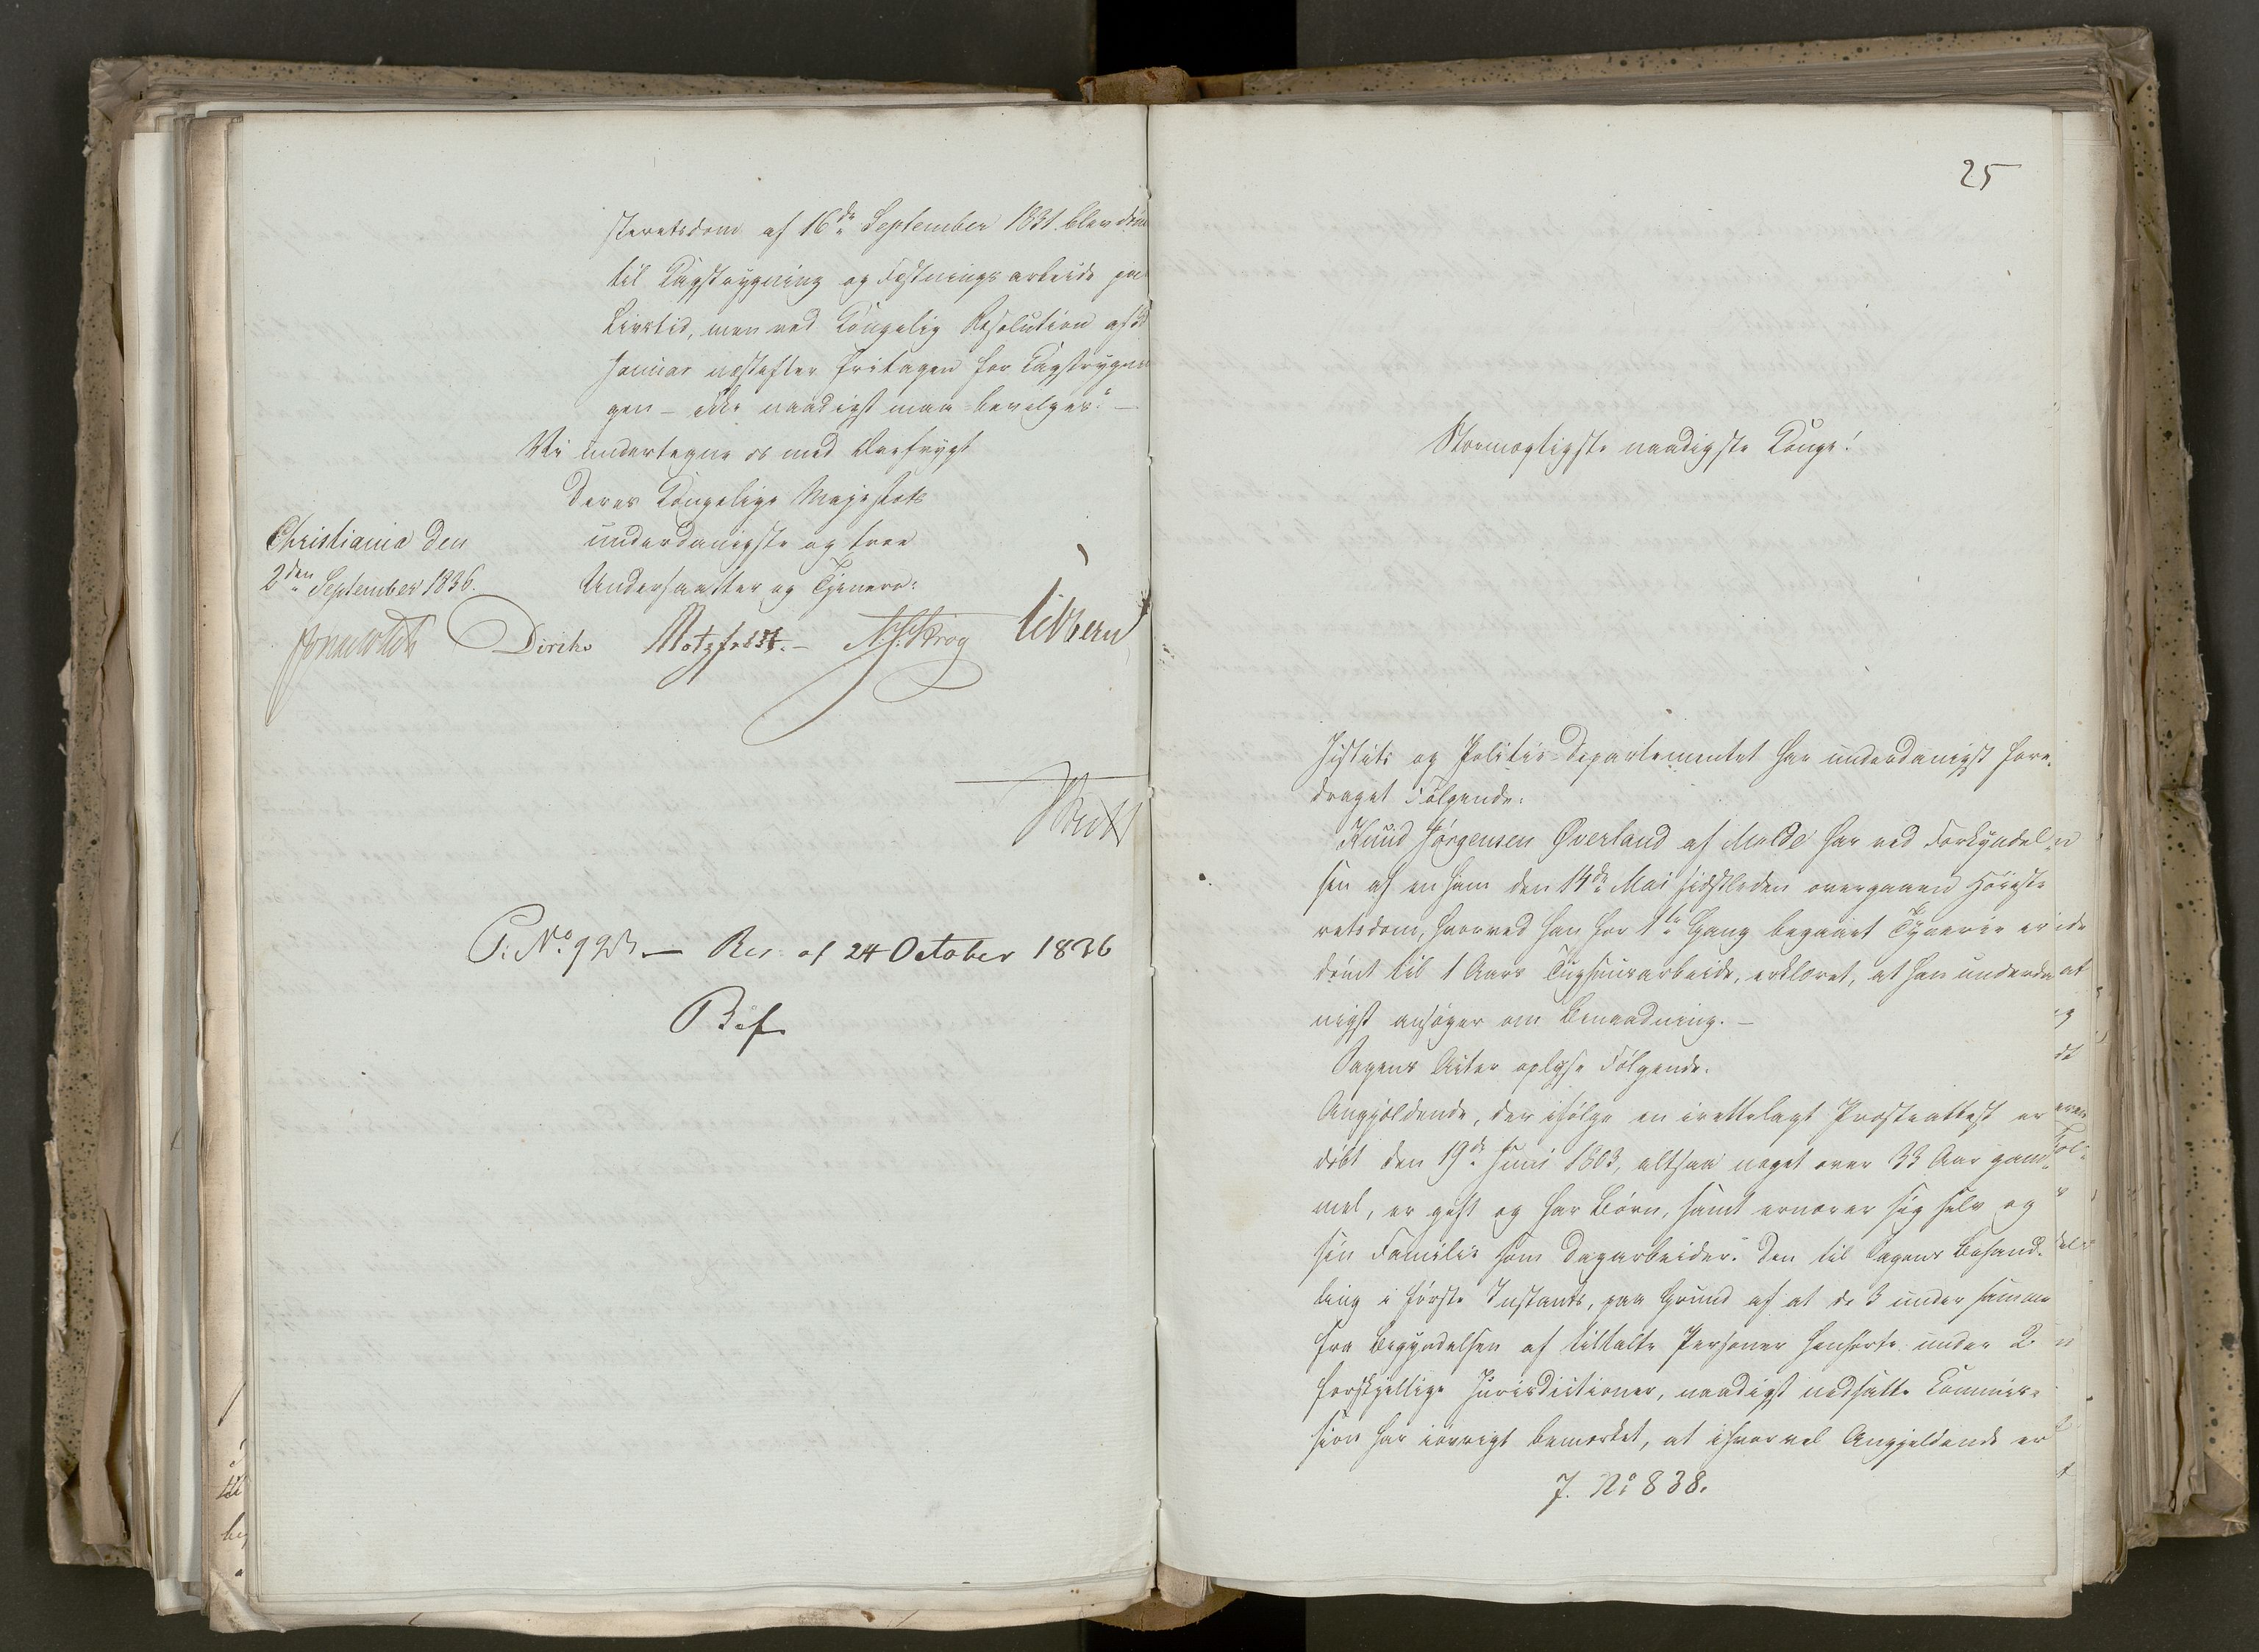 steretsdom af 16de September 1831 blev døm
til Kagstrygning og Fæstningsarbeide paa
Livstid, men ved Kongelig Resolution af
Januar næstefter fritagen for Kagstrygnin
gen – ikke naadigst maa bevilges." –
Vi undertegne os med Ærefrygt
Deres Kongelige Majestæts
Christiania den
underdanigste og troe
2den September 1836.
Undersaatter og Tjenere:
Diriks Motzfeldt. – N. J. Krog Vibe
P: No. 923 – Res: af 24 October 1836
Bif
25
Stormægtigste naadigste Konge!
Justits og Politie-Departementet har underdanigst fore-
draget Følgende:
Knud Jørgensen Øverland af Molde har ved Forkyndel-
sen af en ham den 14de Mai sidstleden overgaaen Høieste-
retsdom, hvorved han for 1ste Gang begaaet Tyverie er
dømt til 1 Aars Tugthuusarbeide, erklæret, at han underda-
nigst ansøger om Benaadning. –
Sagens Acter oplyse Følgende:
Angjældende, der ifølge en irettelagt Præsteattest er
døbt den 19de Juni 1803, altsaa noget over 33 Aar gam-
mel, er gift og har Børn, samt ernærer sig selv og
sin Familie som Dagarbeider. Den til Sagens Behand-
ling i første Instants, paa Grund af at de 3 under samme
fra Begyndelsen af tiltalte Personer henhørte under 2
forskjellige Jurisdictioner, naadigst nedsatte Commis-
sion har iøvrigt bemærket, at ihvorvel Angjældende er
J. No 838.